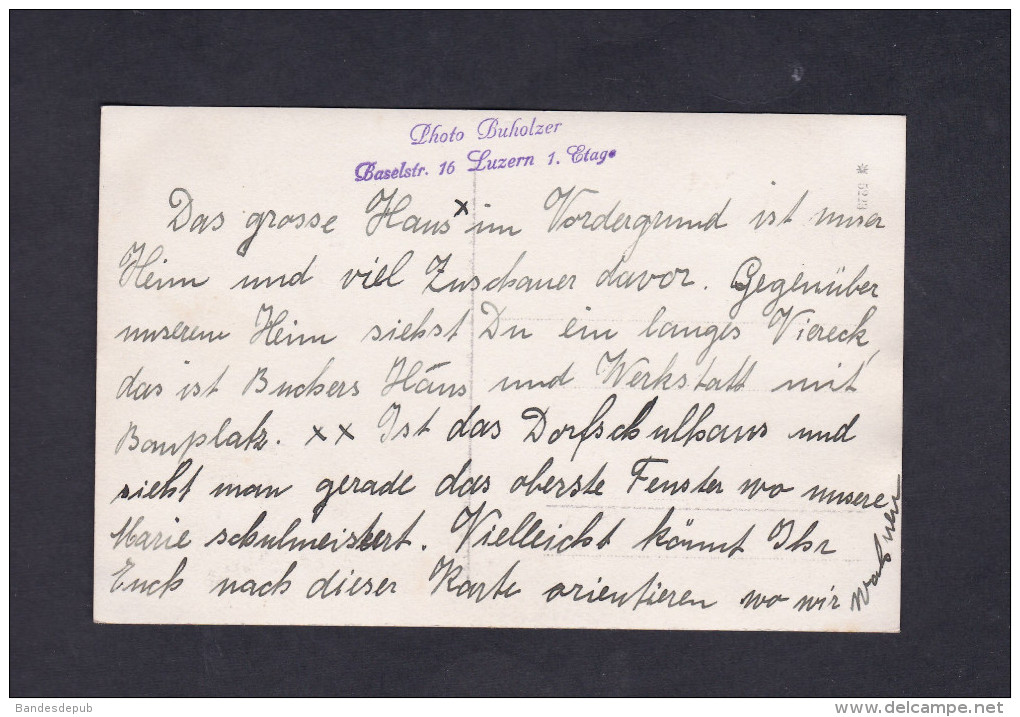 Photo Buholzer
Baselstr. 16 Luzern 1. Etage
* 5279
Das grosse Haus x im Vordergrund ist unser
Heim und viel Zuschauer davor. Gegenüber
unserem Heim siehst Du ein langes Viereck,
das ist Buchers Häus und Werkstatt mit
Bauplatz. xx Ist das Dorfschulhaus und
sieht man gerade das oberste Fenster wo unsere
Marie schulmeistert. Vielleicht könnt Ihr
Euch nach dieser Karte orientieren wo wir
wohnen
Bandesdepub
www.delcampe.net